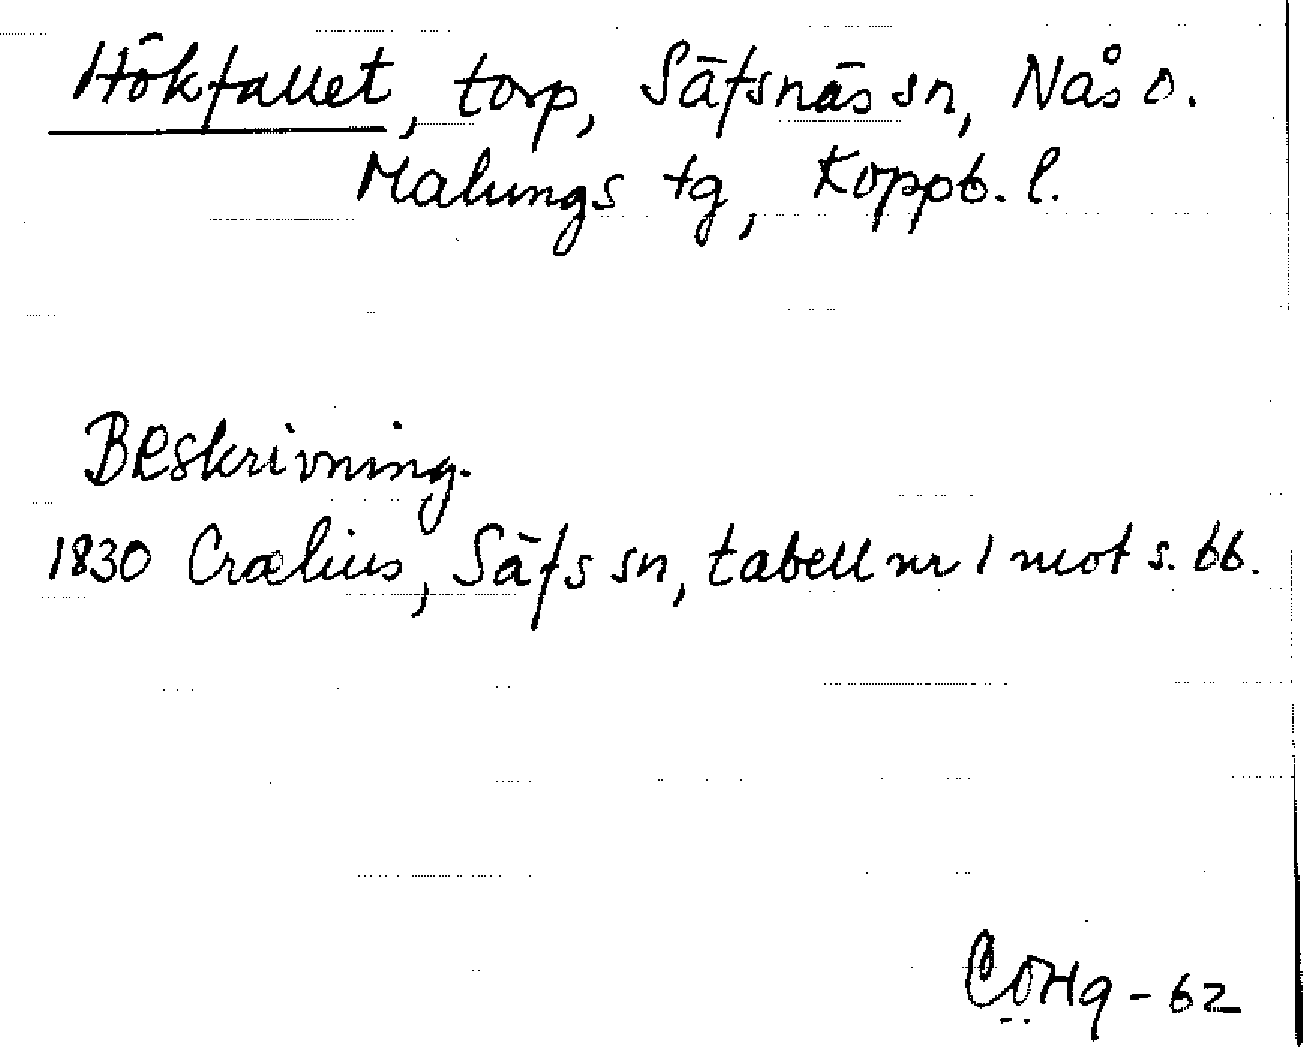 Hökfallet, torp, Säfsnäs sn, Nås o.
Malungs tg, Koppb. l.
Beskrivning.
1830 Crælius, Säfs sn, tabell nr 1 mot s. 66.
-62